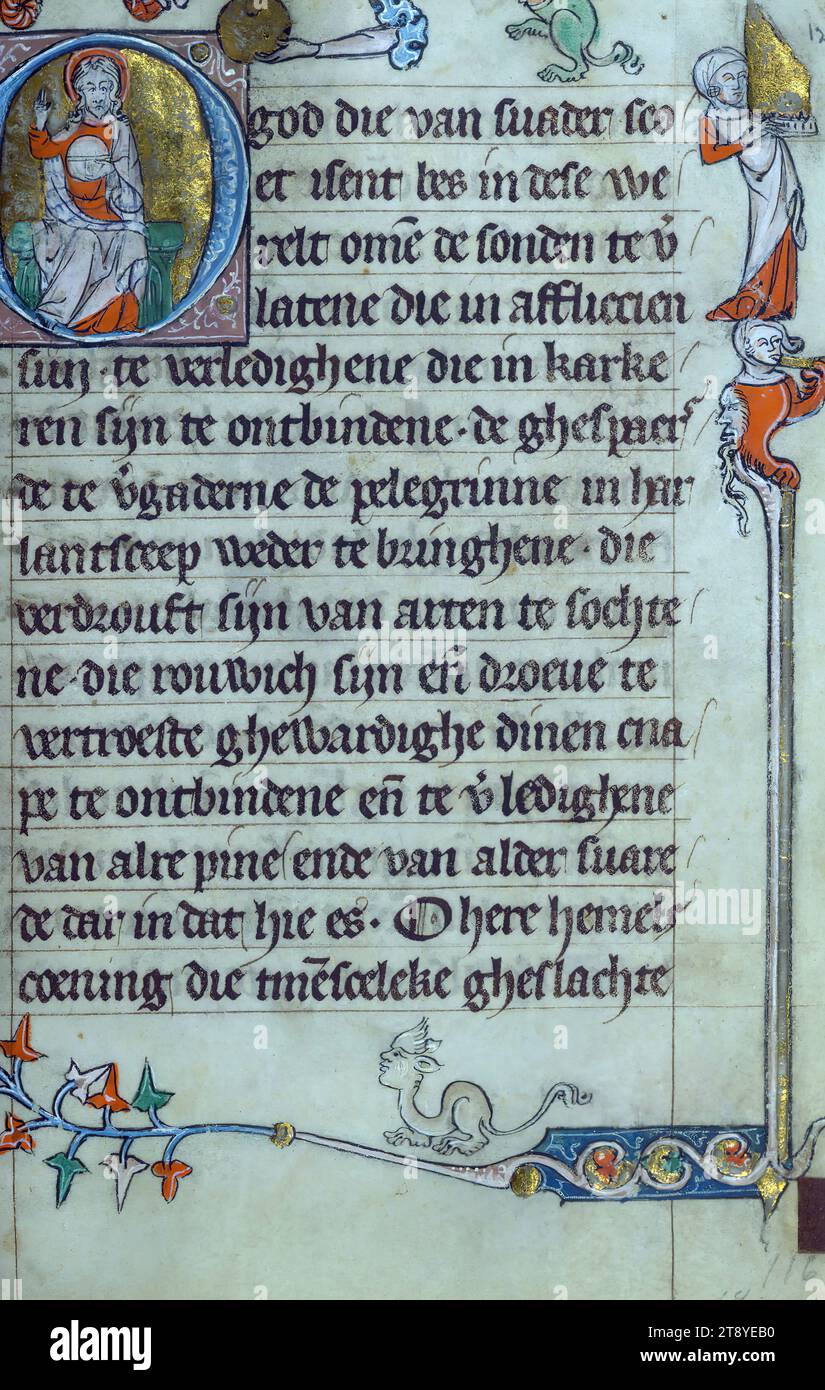 O
god die van suader sco
et isent bes in dese we
relt omē de sonden te v̄
latene die in affliccien
sijn · te verledighene die in karke
ren sijn te ontbindene · de ghespaer̄
de te v̄gaderne de pelegrinne in har
lantsceep weder te bringhene · die
verdrouft sijn van arten te sochte
ne · die rouwich sijn en̄ droeue te
vertroeste ghewardighe dinen cna
pe te ontbindene en̄ te v̄ledighene
van alre pine ende van alder suare
de dar in dat hie es · O here hemels
coening die tmēsceleke gheslachte
116
alamy
Image ID: 2T8YEB0
www.alamy.com